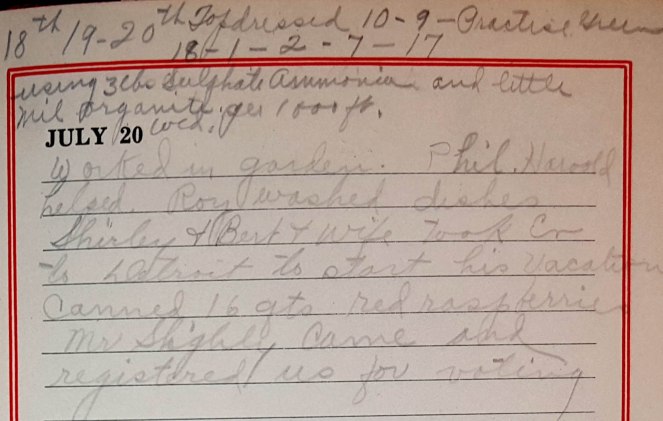 18th 19-20th Topdressed 10-9-Practise Green
18-1-2-7-17
using 3 lbs Sulphate Ammonia and little
Mil organite per 1000 ft.
JULY 20 Wed.
Worked in garden. Phil. Harold
helped. Roy washed dishes
Shirley & Bert & Wife took
to Detroit to start his Vacation
Canned 16 qts red raspberries
Mr came and
registered us for voting